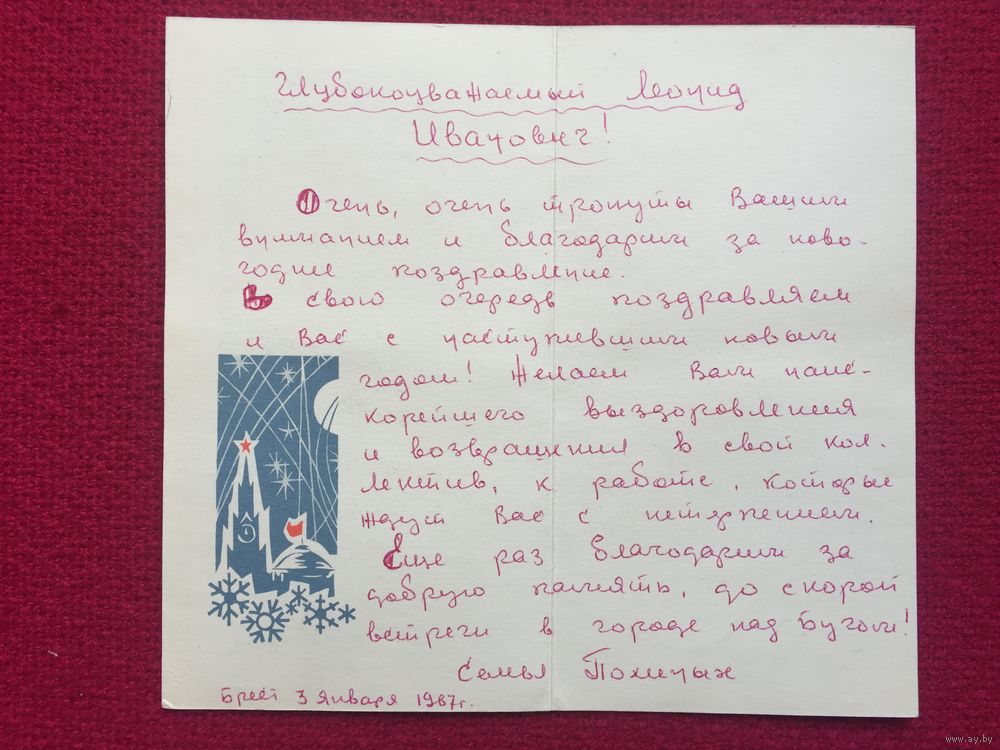 Глубокоуважаемый Леонид
Иванович!
Очень, очень тронуты Вашим
вниманием и благодарим за ново-
годнее поздравление.
В свою очередь поздравляем
и Вас с наступившим новым
годом! Желаем Вам наис-
корейшего выздоровления
и возвращения в свой кол-
лектив, к работе, которые
ждут Вас с нетерпением.
Еще раз благодарим за
добрую память, до скорой
встречи в городе над Бугом!
Семья
Брест 3 января 1987г.
www.ay.by